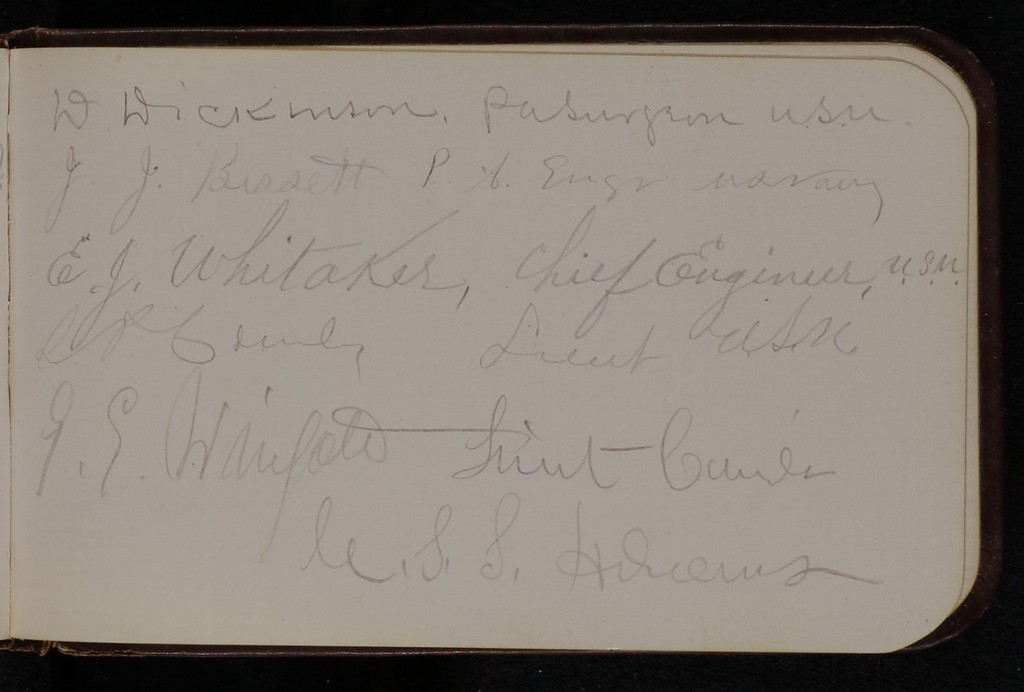 D Dickinson. PaSurgeon U.S.N.
J. J. Bissett P. A. Engr US Navy
E. J. Whitaker, Chief Engineer, U.S.N.
Lieut USN.
G. E. Wingate Lieut Comdr
U.S.S. Adams